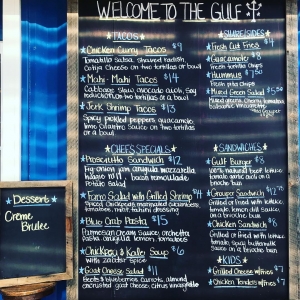 WELCOME TO THE GULF
TACOS
Chicken Curry Tacos $9
Tomatillo Salsa, shaved radish,
Cotija Cheese on two tortillas
Mahi-Mahi Tacos $14
Cabbage Slaw, avocado aioli, Soy
reduction on two tortillas or a bowl
Jerk Shrimp Tacos $13
Spicy pickled peppers, guacamole,
lime cilantro Sauce on two tortillas
or a bowl
CHEF'S SPECIALS
Prosciutto Sandwich $12
Fig onion jam, arugula, mozzarella
potato salad
Farro Salad with Grilled Shrimp $14
Blue Crab Pasta $15
Parmesan Cream Sauce, orchetta
pasta, arugula, lemon, tomatoes
Chickpea & Kale Soup $6
with
Goat Cheese Salad $11
Beets, blueberries, Carrots, almond
encrusted goat cheese, Citrus vinaigrette
SHARE/SIDES
Fresh Cut Fries $4
Guacamole $8
Fresh tortilla Chips
Hummus $7.50
Fresh pita Chips
Mixed Green Salad $5.50
Mixed greens, Cherry tomatoes,
SANDWICHES
Gulf Burger $8
tomato, garlic aioli on a
brioche bun
Grouper Sandwich $12
Fried or grilled with lettuce,
tomato, lemon dill Sauce,
on a brioche bun
Chicken Sandwich $8
Fried or grilled with lettuce,
tomato, buttermilk
Sauce on a brioche bun
KIDS
Grilled Cheese w/fries $7
Chicken Tenders w/fries $7
Desserts
Creme
Brulee